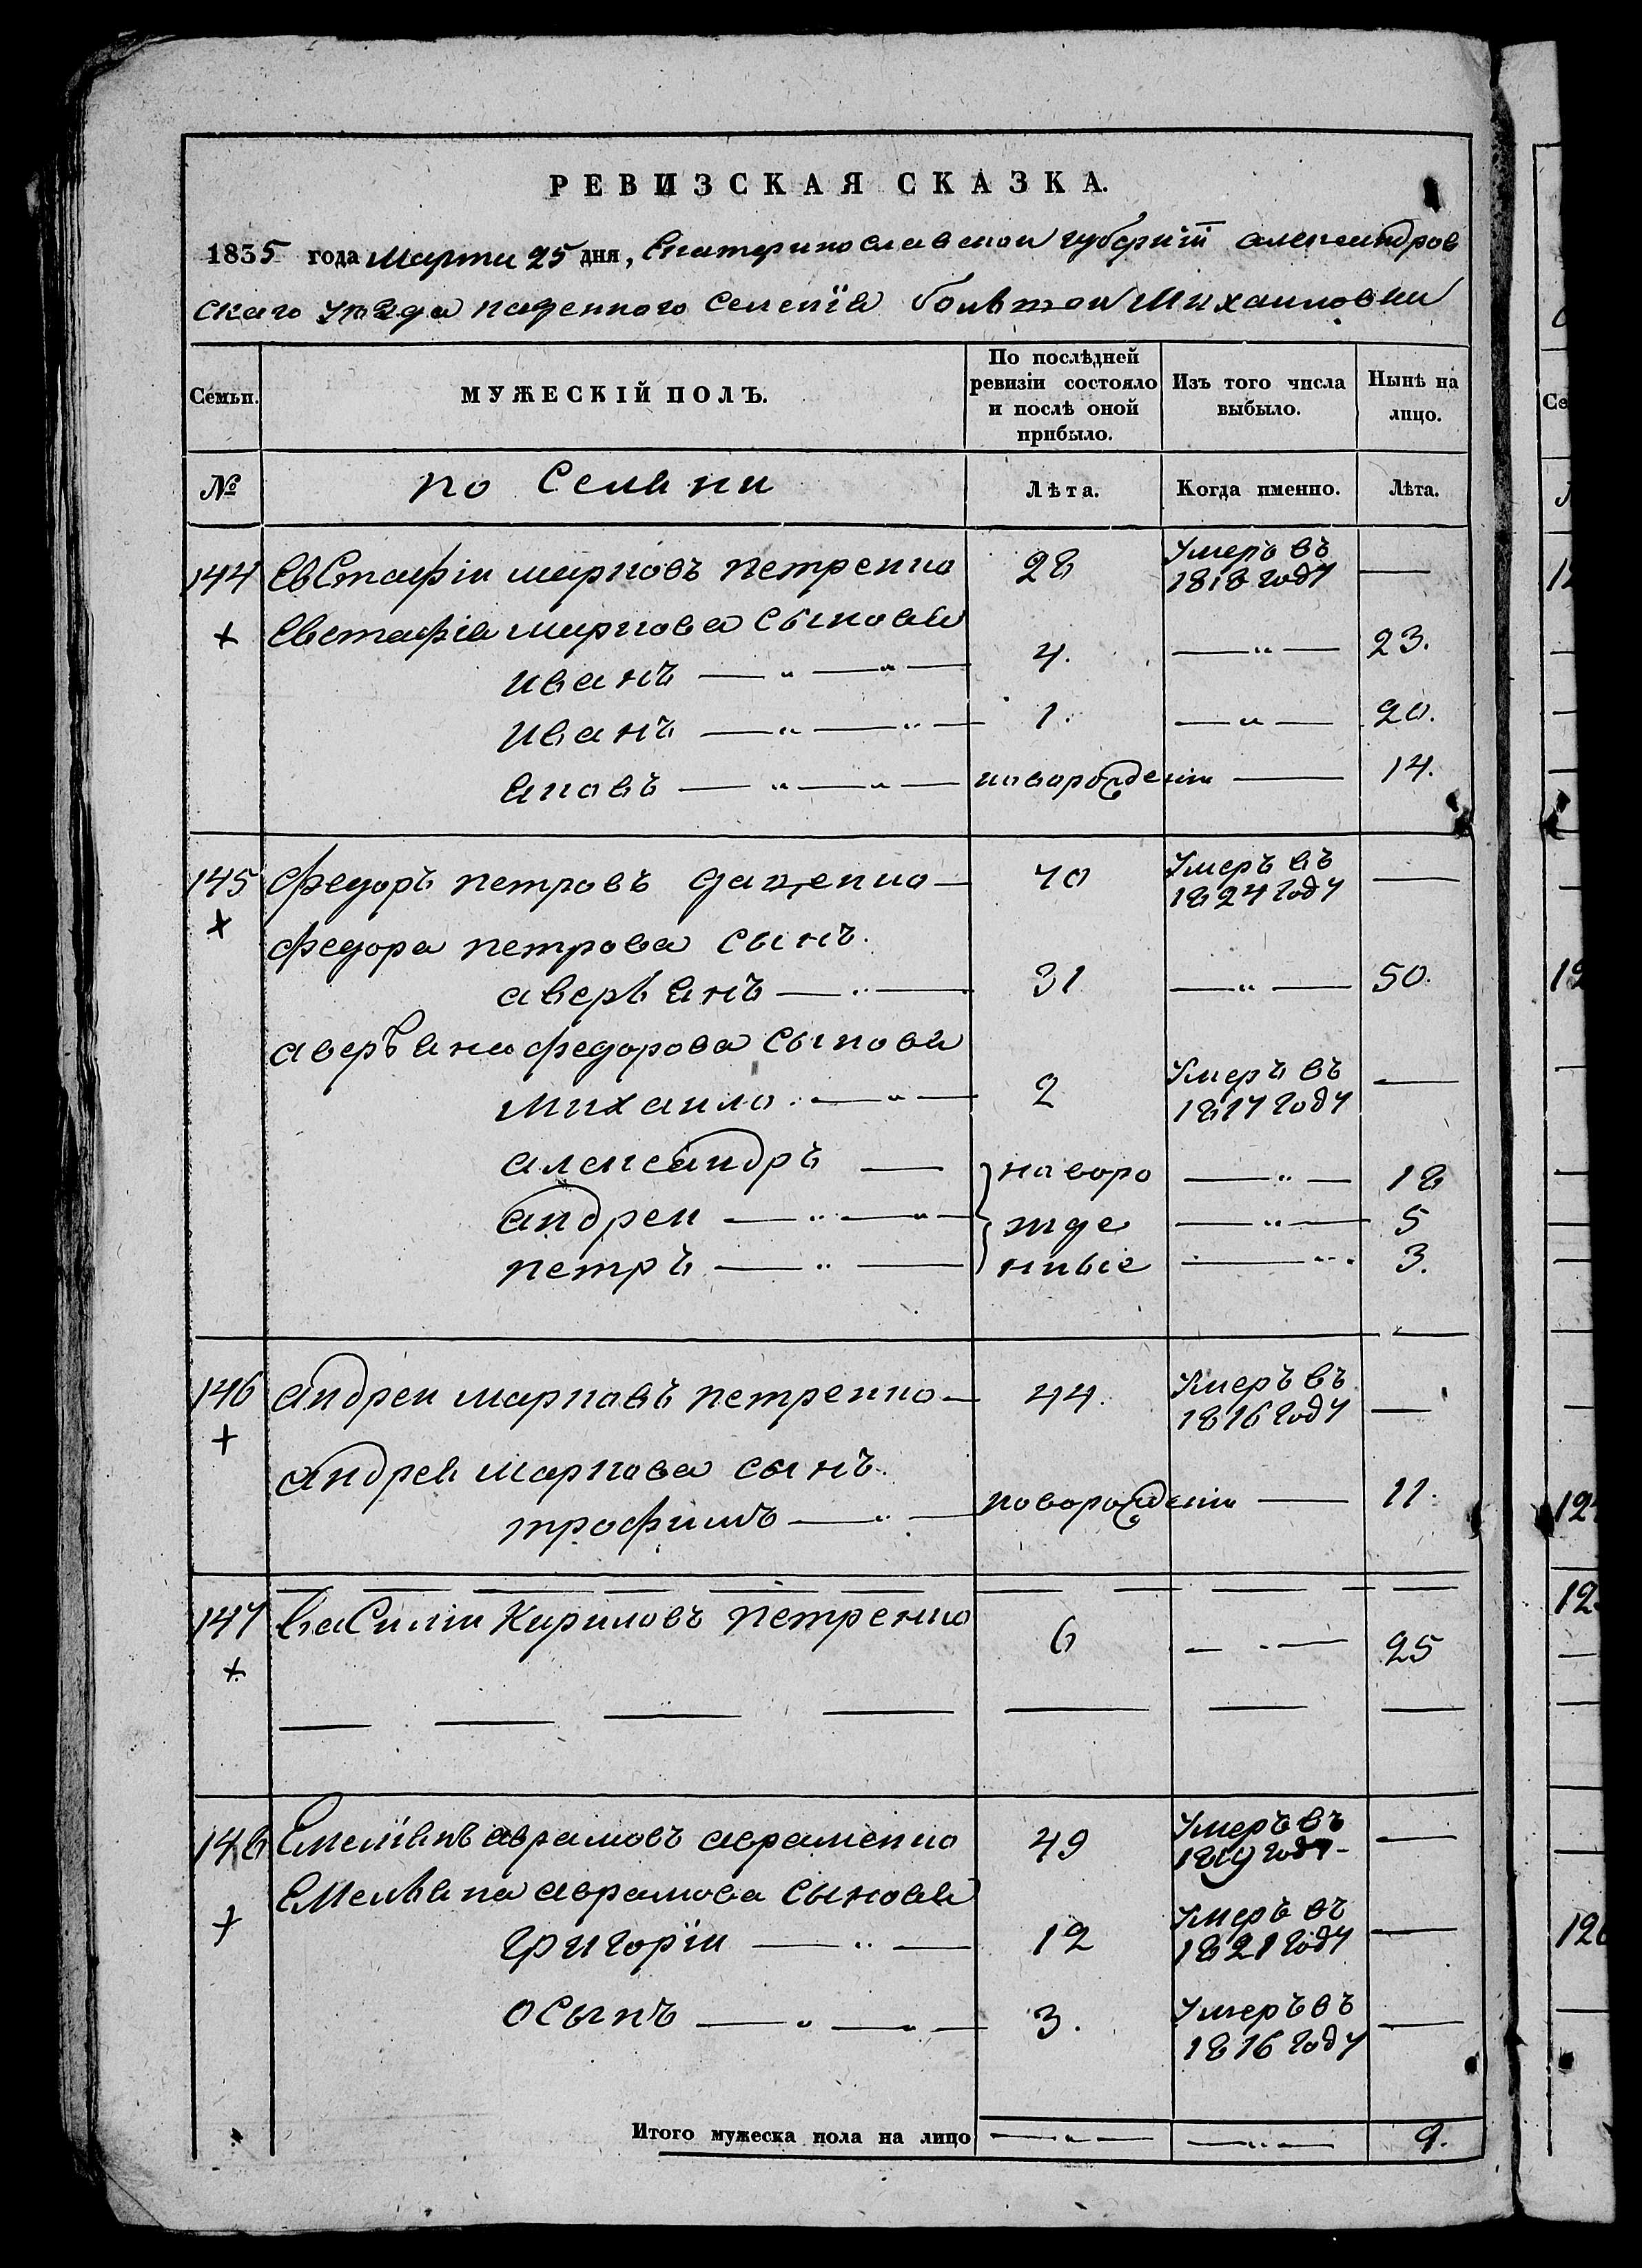 РЕВИЗСКАЯ СКАЗКА.
1835 года марта 25 дня, Екатеринославской губернїи александров
скаго уѣзда казенного селенїя большой Михайловки
Семьи.
МУЖЕСКІЙ ПОЛЪ.
По послѣдней ревизіи состояло и послѣ оной прибыло.
Изъ того числа выбыло.
Нынѣ на лицо.
№
Лѣта.
Когда именно.
Лѣта.
144 Евстафіи марковъ петренко 28 Умеръ въ 1818 году —
+ Евстафія маркова сыновья
иванъ — „ — „ — 4. — „ — 23.
иванъ — „ — „ — 1. — „ — 20.
яковъ — „ — „ — новорожденн — 14.
145 федоръ петровъ даценко — 70 Умеръ въ 1824 году —
+ федора петрова сынъ.
аверьянъ — „ — 31 — „ — 50.
аверъяна федорова сыновя
михаило — „ — 2 Умеръ въ 1817 году —
александръ — новоро — „ — 18
андреи — „ — „ — жде — „ — 5
петръ — „ — нные — „ 3.
146 андреи марковъ петренко — 44. Умеръ въ 1816 году —
+ андрея маркова сынъ.
трофимъ — „ — новорожденн — 11.
147 василіи Кириловъ петренко 6 — „ — 25
+
148 Емельянъ аврамовъ авраменко 49 Умеръ въ 1819 году —
+ Емельяна аврамова сыновья
григорїи — „ — 12 Умеръ въ 1821 году —
осыпъ — „ — „ — 3. Умеръ въ 1816 году —
Итого мужеска пола на лицо — „ — — „ — 9.